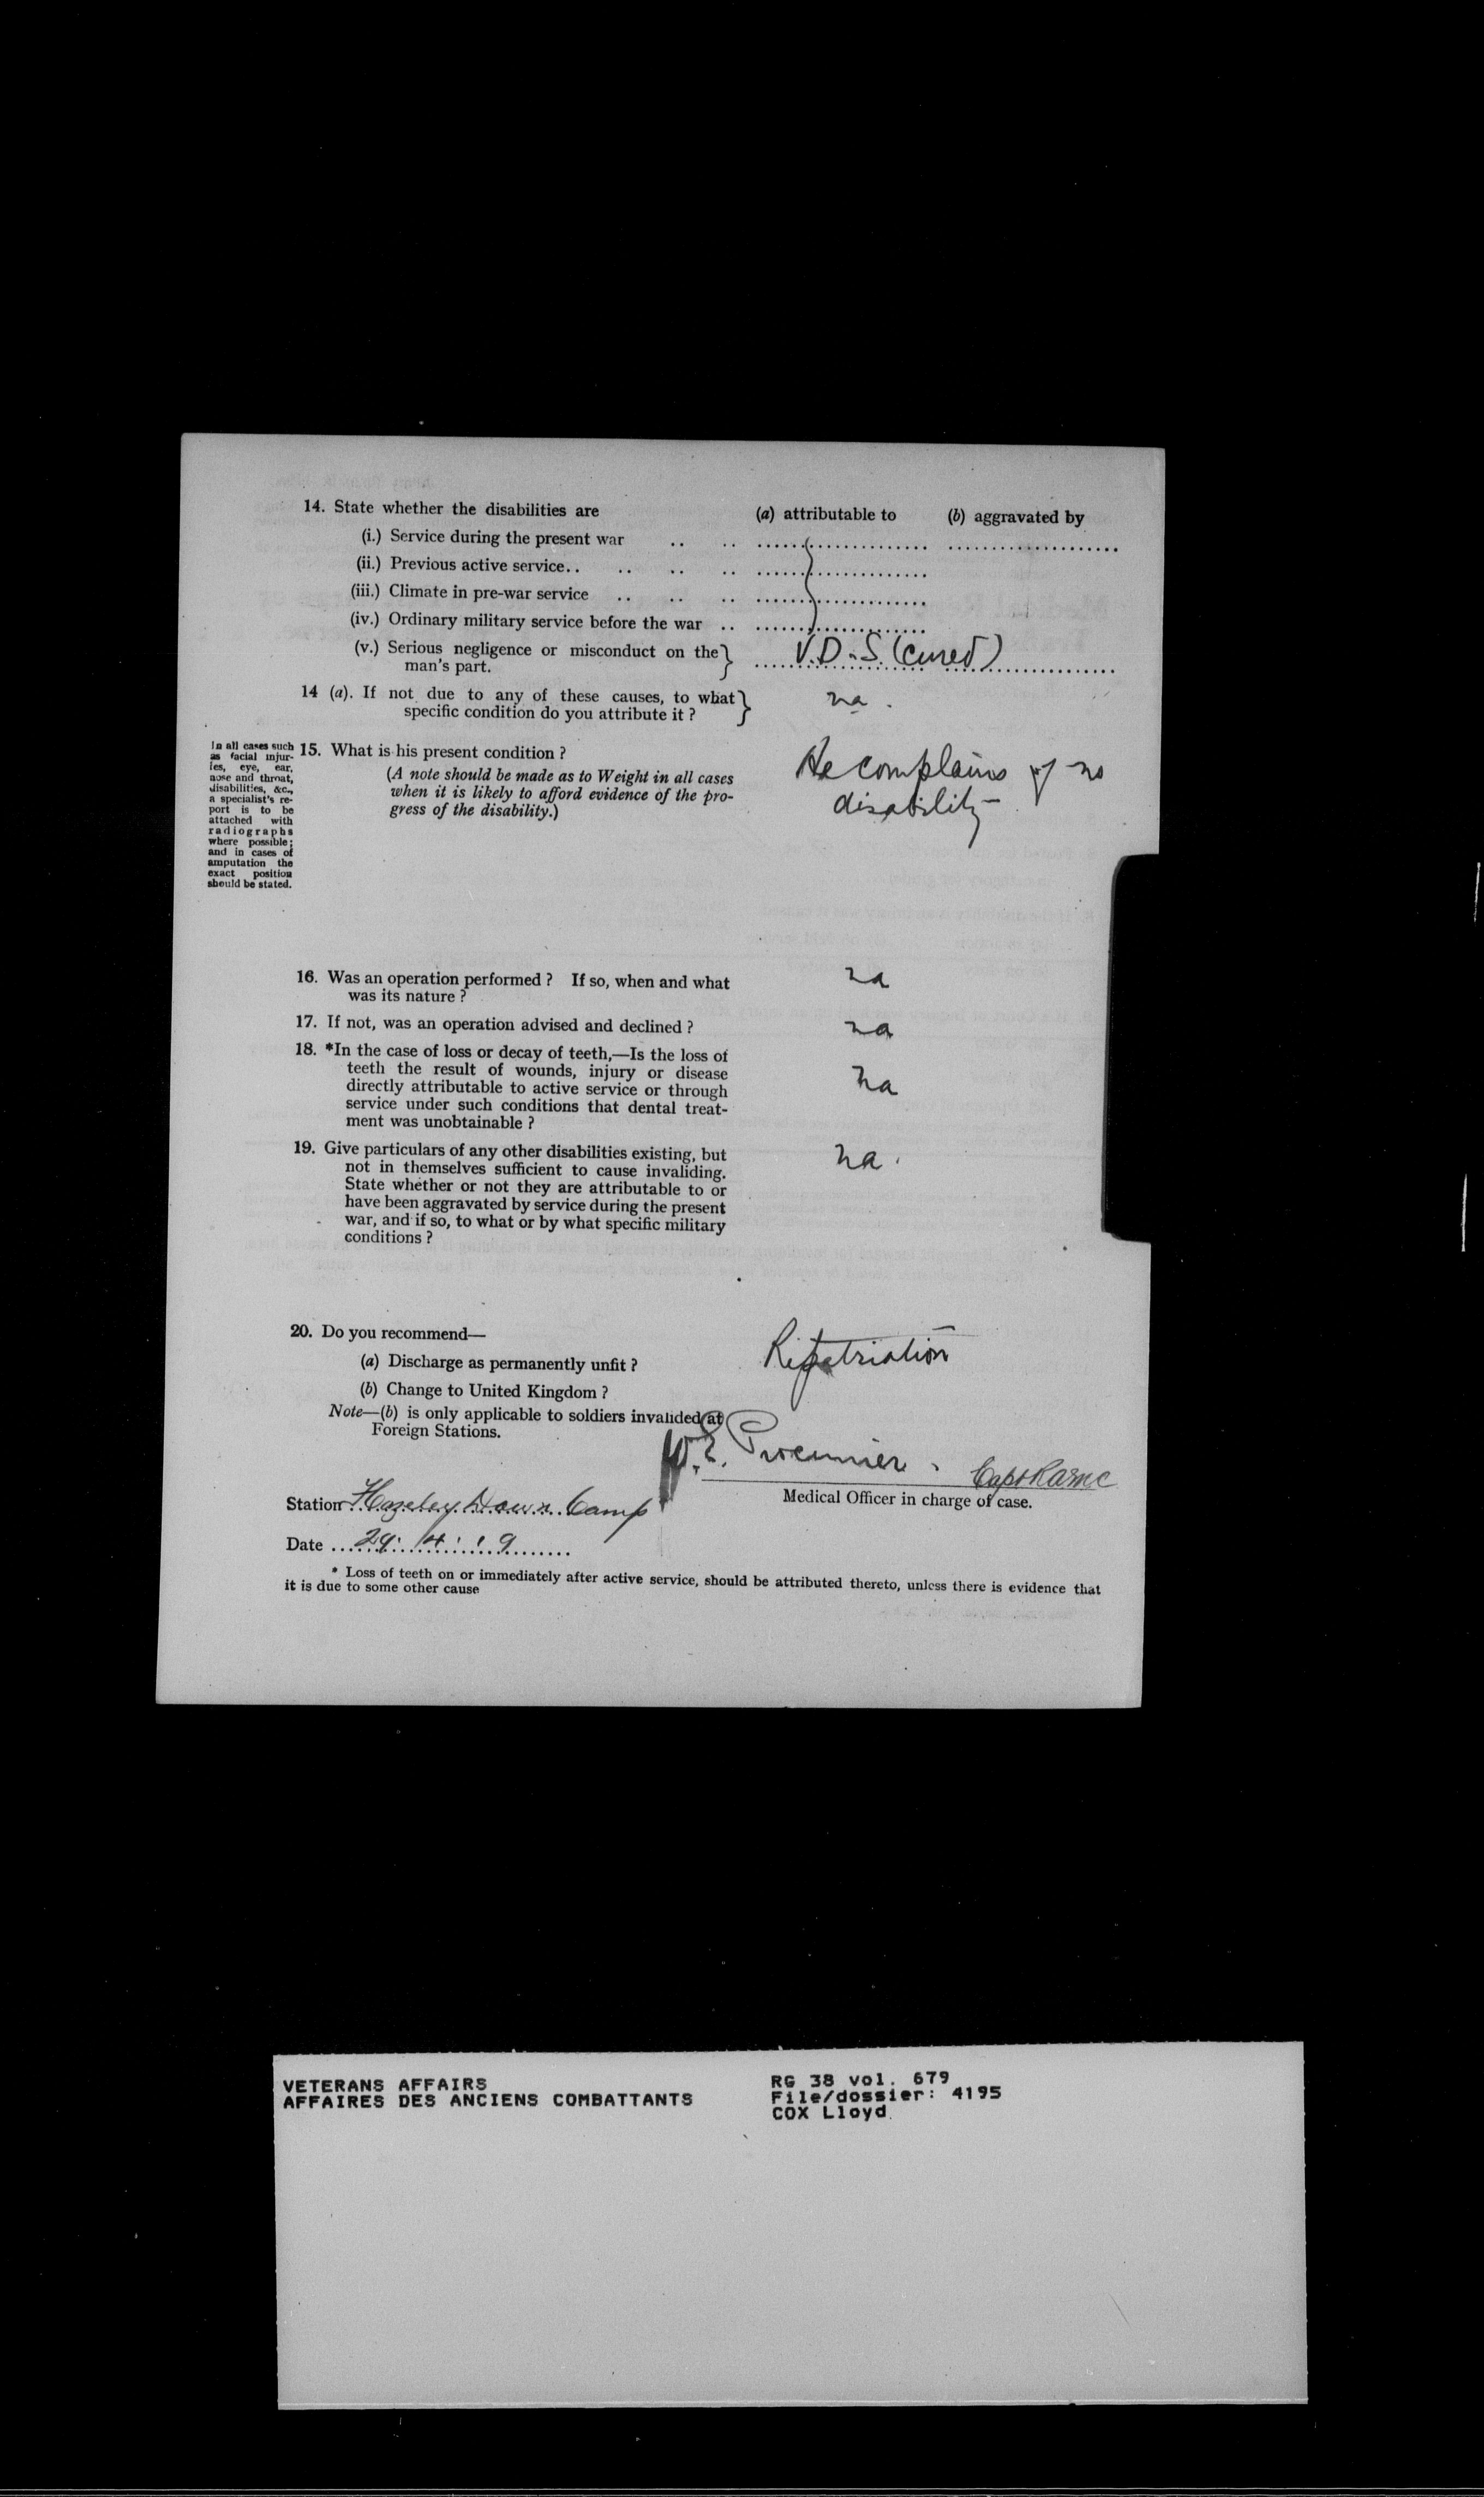 14. State whether the disabilities are (a) attributable to (b) aggravated by
(i.) Service during the present war .. .. .................... ....................
(ii.) Previous active service.. .. .. .. ....................
(iii.) Climate in pre-war service .. .. .. ....................
(iv.) Ordinary military service before the war .. ....................
(v.) Serious negligence or misconduct on the } V.D.S. (cured)
man's part.
14 (a). If not due to any of these causes, to what } na.
specific condition do you attribute it ?
In all cases such
as facial injur-
ies, eye, ear,
nose and throat,
disabilities, &c.,
a specialist's re-
port is to be
attached with
radiographs
where possible;
and in cases of
amputation the
exact position
should be stated.
15. What is his present condition ? He complains of no
(A note should be made as to Weight in all cases disability
when it is likely to afford evidence of the pro-
gress of the disability.)
16. Was an operation performed ? If so, when and what na
was its nature ?
17. If not, was an operation advised and declined ? na
18. *In the case of loss or decay of teeth,—Is the loss of
teeth the result of wounds, injury or disease
directly attributable to active service or through na
service under such conditions that dental treat-
ment was unobtainable ?
19. Give particulars of any other disabilities existing, but na.
not in themselves sufficient to cause invaliding.
State whether or not they are attributable to or
have been aggravated by service during the present
war, and if so, to what or by what specific military
conditions ?
20. Do you recommend—
(a) Discharge as permanently unfit ? Repatriation
(b) Change to United Kingdom ?
Note—(b) is only applicable to soldiers invalided at
Foreign Stations.
W.E. Procunier. Capt RAMC
Medical Officer in charge of case.
Station Hazeley Down Camp
Date 29. 4. 19
* Loss of teeth on or immediately after active service, should be attributed thereto, unless there is evidence that
it is due to some other cause
VETERANS AFFAIRS
AFFAIRES DES ANCIENS COMBATTANTS
RG 38 vol. 679
File/dossier: 4195
COX Lloyd